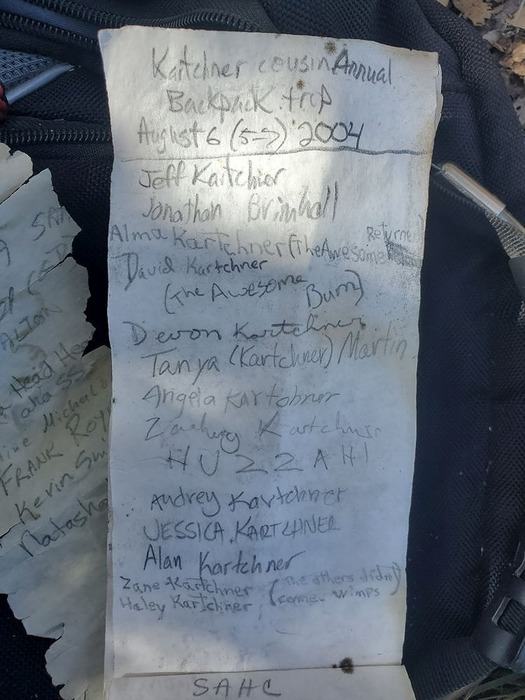 Kartchner cousin Annual
Backpack trip
August 6 (5-7) 2004
Jeff Kartchner
Jonathan Brimhall
Alma Kartchner (The Awesome Returne)
David Kartchner
(The Awesome Bum)
Devon Kartchner
Tanya (Kartchner) Martin
Angela Kartchner
Zachary Kartchner
HUZZAH!
Audrey Kartchner
JESSICA KARTCHNER
Alan Kartchner
Zane Kartchner (The others didn't
Haley Kartchner come. wimps)
SAHC
Head
aka
Michal
FRANK ROY
Kevin Smi
Natasha